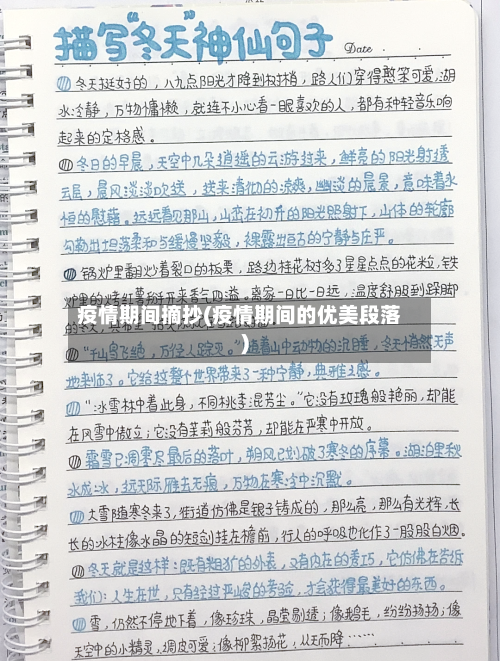 描写“冬天”神仙句子 Date
冬天挺好的，八九点阳光才降到树梢，路人们穿得憨笨可爱，湖
水冷静，万物慵懒，就连不小心看一眼喜欢的人，都有种轻音乐响
起来的定格感。
冬日的早晨，天空中几朵逍遥的云游过来，鲜亮的阳光射透
云层，晨风淡淡吹送，送来清彻的凉爽，幽淡的晨景，意味着永
恒的慰藉。远远看见那山，山峦在初升的阳光照射下，山体的轮廓
勾勒出坦荡柔和与缓慢坚毅，裸露出亘古的宁静与庄严。
锅炉里翻炒着裂口的板栗，路边桂花树多了星星点点的花粒，铁
炉里的烤红薯掰开来香气四溢。离家一日比一日远，温度舒服到跺脚
疫情期间摘抄(疫情期间的优美段落
)
“千山鸟飞绝，万径人踪灭。”
山中动物的沉睡，冬天悄然无声
地来临了。它给这整个世界带来了一种宁静，典雅之感。
“冰雪林中着此身，不同桃李混芳尘。”它没有玫瑰般艳丽，却能
在风雪中傲立；它没有茉莉般芬芳，却能在严寒中开放。
霜雪已凋零尽最后的落叶，朔风已划破了寒冬的序幕。湖泊里秋
水成冰，远天际雁去无痕，万物在寒冷中沉默。
大雪随寒冬来了，街道仿佛是银子铸成的，那么亮，那么有光辉，长
长的冰柱像水晶的短剑挂在檐前，行人的呼吸也化作了一股股白烟。
冬天就是这样：既有粗犷的外表，又有内在的秀巧，它仿佛在告诉
我们：人生在世，只有经过严峻的考验，才会获得最美好的东西。
雪，仍然不停地下着，像珍珠，晶莹剔透；像鹅毛，纷纷扬扬；像
天空中的小精灵，调皮可爱；像柳絮扬花，从天而降……